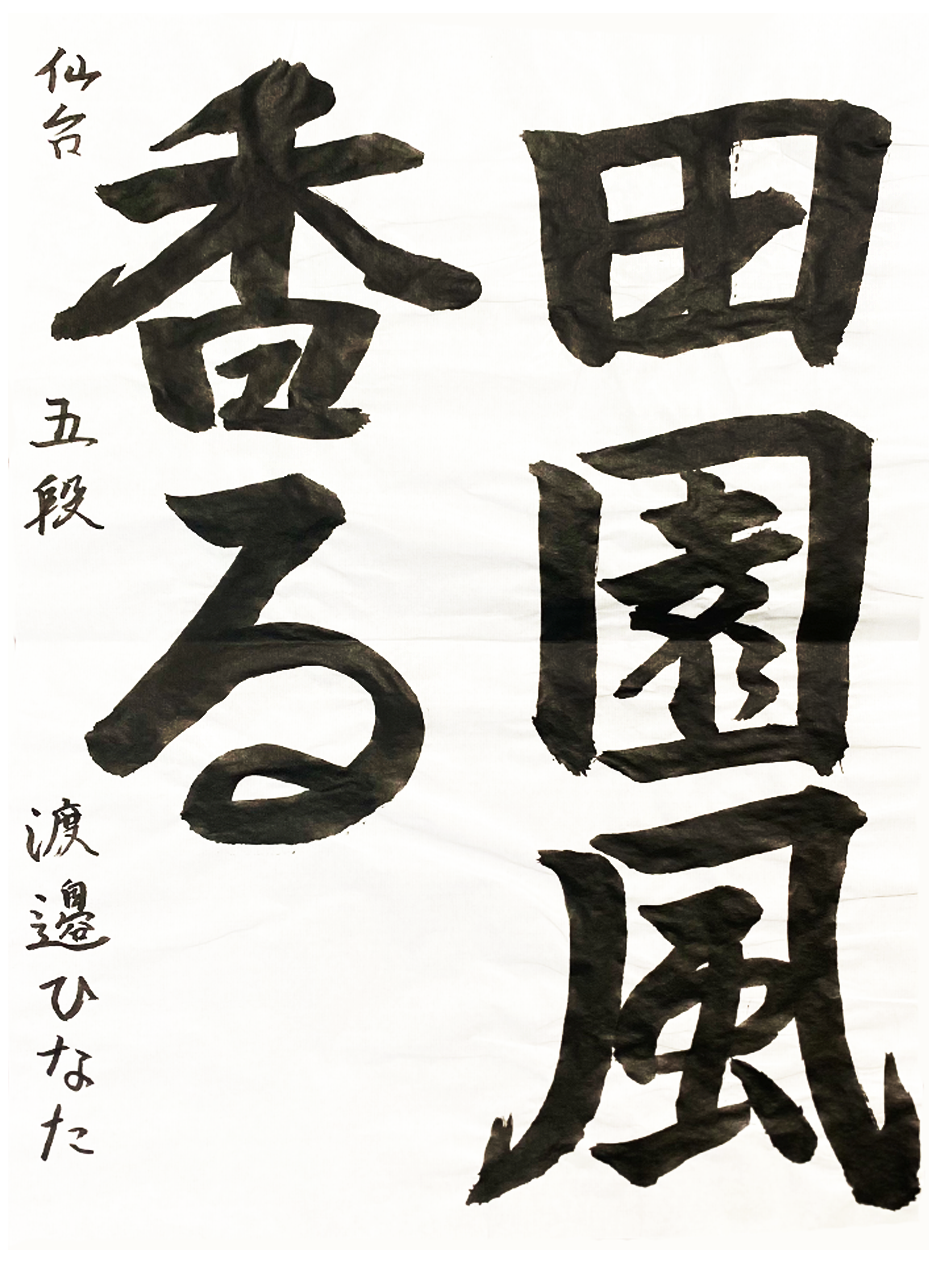 田園風
香る
仙台 五段 渡邉ひなた